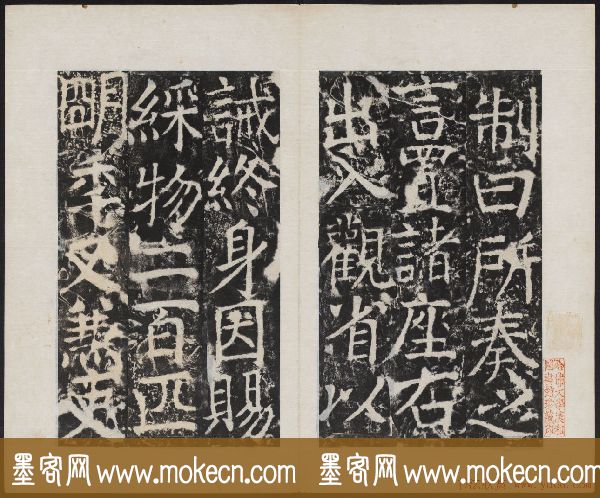 制曰所奏之
言置諸座右
出入觀省以
誡終身因賜
綵物三百匹
明年又兼吏
墨客网 www.mokecn.com
墨客网 www.mokecn.com